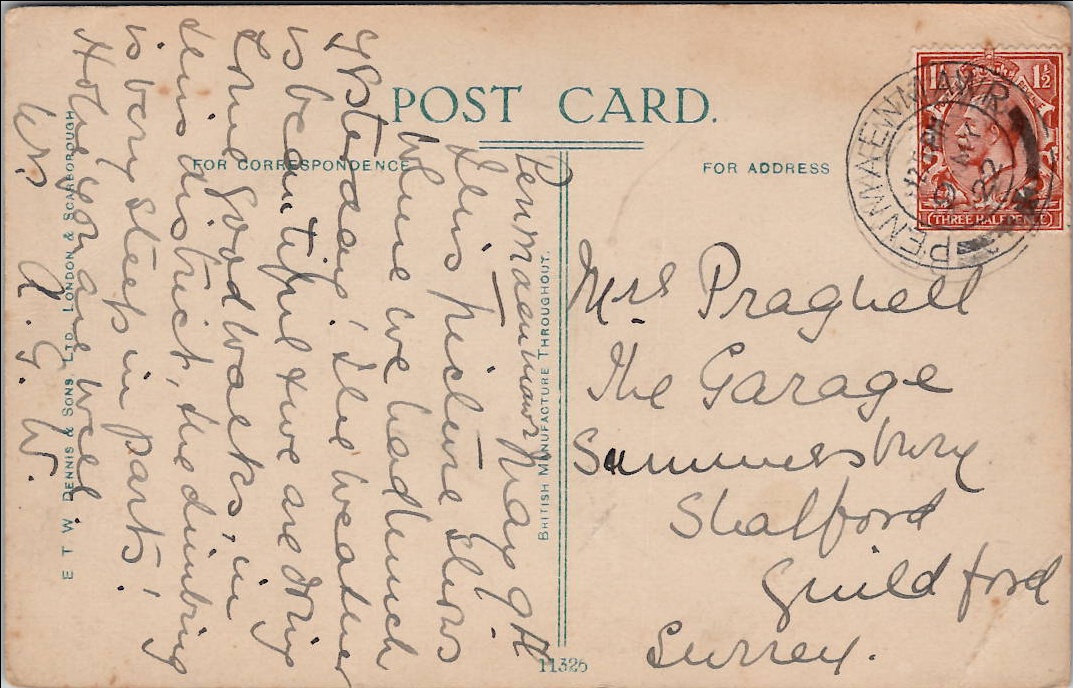 POST CARD.
FOR CORRESPONDENCE
FOR ADDRESS
BRITISH MANUFACTURE THROUGHOUT.
E. T. W. DENNIS & SONS, LTD. LONDON & SCARBOROUGH
11326
PENMAENMAWR
PM
MY
22
1½ 1½
THREE HALFPENCE
Penmaenmawr May 9th
This picture shows
where we had lunch
yesterday! The weather
is beautiful & we are doing
some good walks, in
this district, the climbing
is very steep in parts!
Hope you are well
A. G. W.
Mrs Pragnell
The Garage
Summersbury
Shalford
Guildford
Surrey.